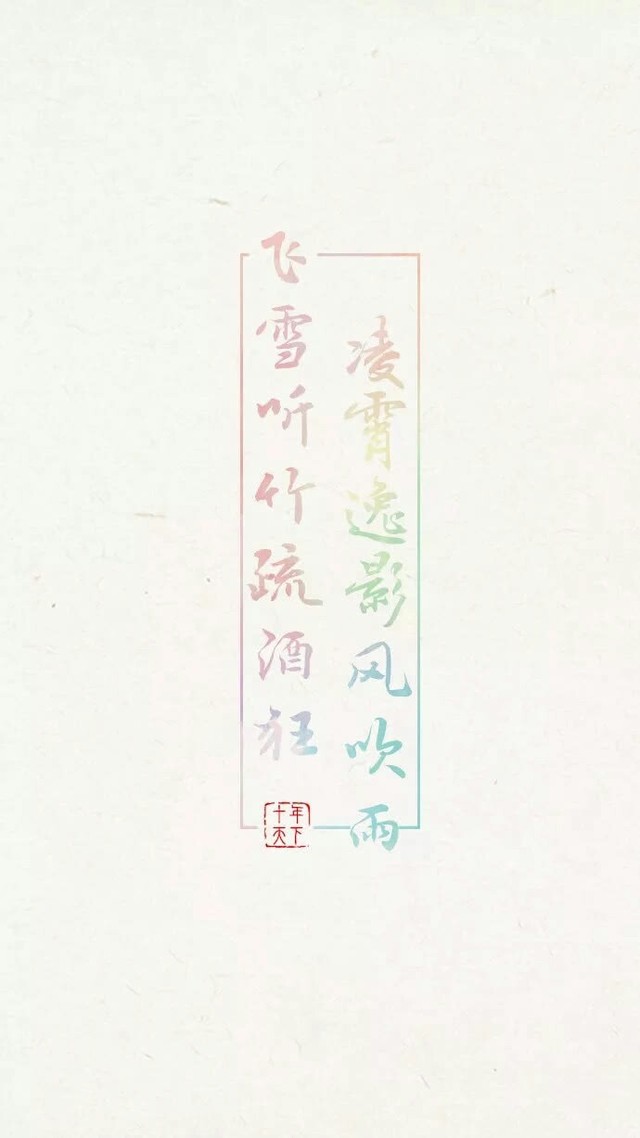 凌霄逸影风吹雨
飞雪听竹疏酒狂
十年
天下